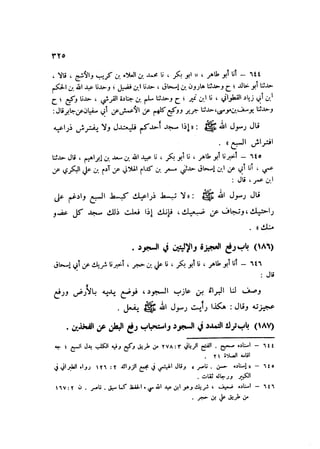 ٣٢٥
٦٤٤ - أنا أبو طاهر ، نا أبو بكر ، نا محمد بن العلاء بن كريب والأشج ، قالا ،
حدثنا أبو خالد ؛ ح وحدثنا هارون بن إسحاق ، حدثنا ابن فضيل ؛ وحدثنا عبد الله بن الحكم
ابن أبي زياد القطواني ، نا ابن نمير ؛ ح وحدثنا سلم بن جنادة القرشي ، حدثنا وكيع ؛ ح
وحدثنا يوسف بن موسى ، حدثنا جرير ووكيع كلهم عن الأعمش عن أبي سفيان عن جابر قال :
قال رسول الله ﷺ : « إذا سجد أحدكم فليعتدل ولا يفترش ذراعيه
افتراش السبع » .
٦٤٥ - أخبرنا أبو طاهر ، نا أبو بكر ، نا عبيد الله بن سعد بن إبراهيم ، حدثنا قال
عمي ، أنا أبي عن ابن إسحاق حدثني مسعر بن كدام الهلالي عن آدم بن علي البكري عن
ابن عمر ، قال :
قال رسول الله ﷺ : « لا تبسط ذراعيك كبسط السبع وادعم على
راحتيك ، وتجاف عن ضبعيك ، فإنك إذا فعلت ذلك سجد كل عضو
منك » .
(١٨٦) باب رفع العجيزة والإليتين في السجود .
٦٤٦ - أنا أبو طاهر ، نا أبو بكر ، نا علي بن حجر ، أخبرنا شريك عن أبي إسحاق
قال :
وصف لنا البراء بن عازب السجود ، فوضع يديه بالأرض ورفع
عجيزته وقال : هكذا رأيت رسول الله ﷺ يفعل .
(١٨٧) باب ترك التمدد في السجود واستحباب رفع البطن عن الفخذين .
٦٤٤ - إسناده صحيح . الفتح الرباني ٣ : ٢٧٨ من طريق وكيع وفيه الكلب بدل السبع ؛ جه
اقامة الصلاة ٢١ .
٦٤٥ - « إسناده حسن . ناصر » وقال الهيثمي في مجمع الزوائد ٢ : ١٢٦ رواه الطبراني في
الكبير ورجاله ثقات .
٦٤٦ - إسناده ضعيف ، شريك وهو ابن عبد الله سيء الحفظ كما سبق . ناصر . ن ٢ : ١٦٧
من طريق علي بن حجر .